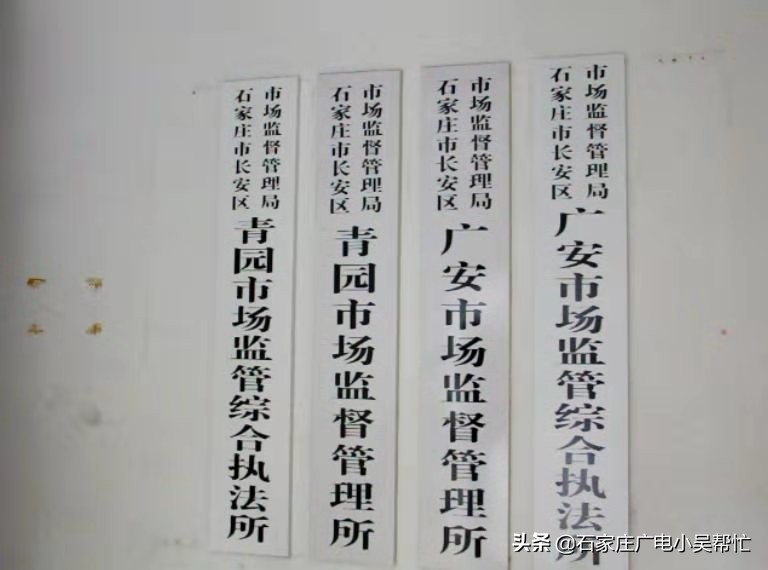 石家庄市长安区
市场监督管理局
青园市场监管综合执法所
石家庄市长安区
市场监督管理局
青园市场监督管理所
石家庄市长安区
市场监督管理局
广安市场监督管理所
石家庄市长安区
市场监督管理局
广安市场监管综合执法所
头条 @石家庄广电小吴帮忙